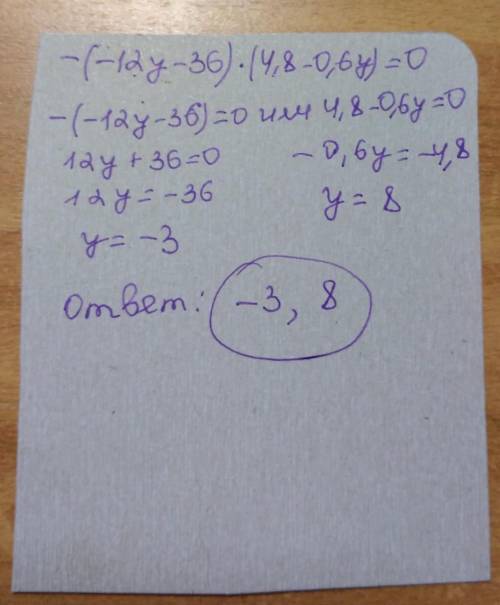 -(-12y-36)·(4,8-0,6y)=0
-(-12y-36)=0 или 4,8-0,6y=0
12y+36=0 -0,6y=-4,8
12y=-36 y=8
y=-3
Ответ: -3, 8